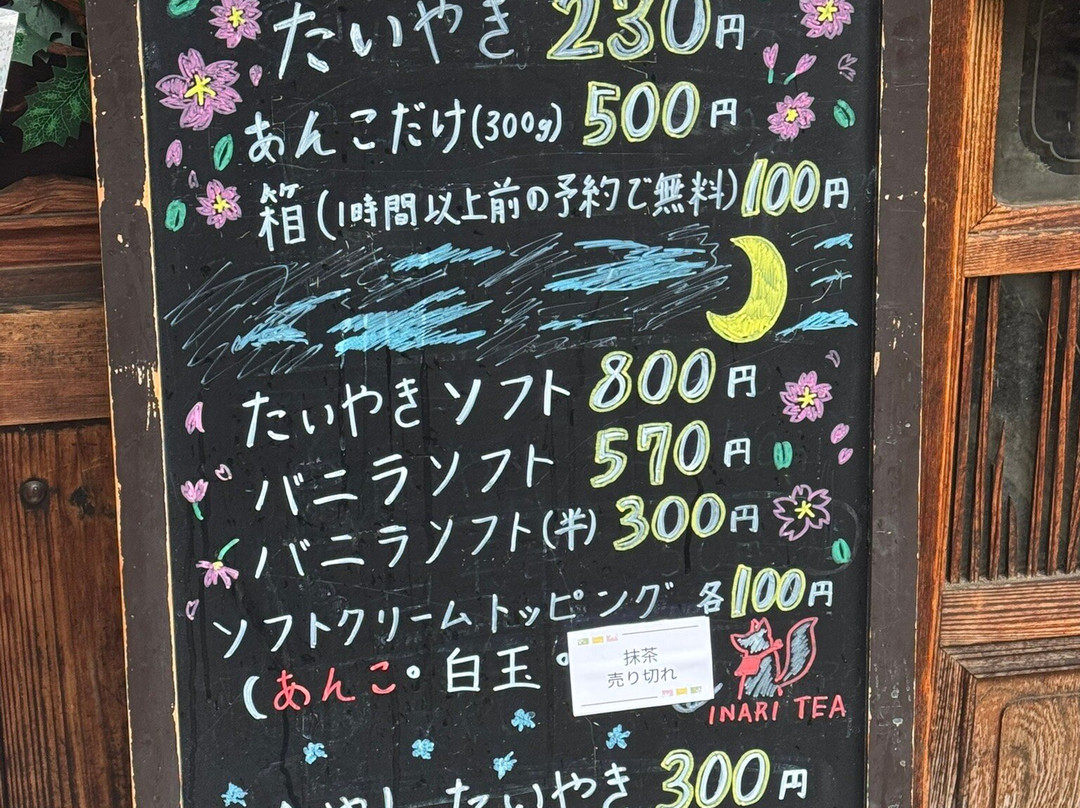 たいやき 230円
あんこだけ(300g) 500円
箱(1時間以上前の予約で無料)100円
たいやきソフト 800円
バニラソフト 570円
バニラソフト(半) 300円
ソフトクリームトッピング 各100円
(あんこ・白玉・
抹茶
売り切れ
INARI TEA
たいやき 300円